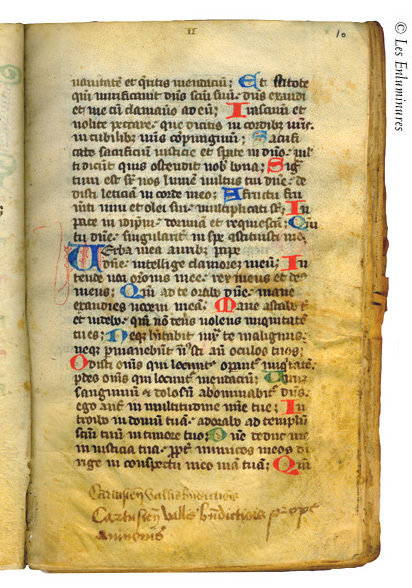 II
10
uanitatē et q̄ritis mendaciū; Et scitote
qm̄ mirificauit dn̄s scm̄ suū. dn̄s exaudi
et me cū clamauo ad eū; Irascimī et
nolite peccare. que dicitis in cordib; ur̄is.
in cubilib; ur̄is cōpungimī; Sacrifi
cate sacrificiū iusticie et sꝑate in dn̄o. ml̄
ti dicūt quis ostendit nob̄ bona; Sig
tum est sr̄ nos lumē uultus tui dn̄e. de
disti leticiā in corde meo; A fructu fru
m̄ti uini et olei sui. multiplicati st̄; In
pace in idip̄m. dormiā et requiescā; Qm̄
tu dn̄e. singularit̄ in spe cōstituisti me.
Uerba mea aurib; ꝑcipe
dn̄e. intellige clamorē meū; In
tende uoci or̄onis mee. rex meus et deus
meus; Qm̄ ad te orabo dn̄e. mane
exaudies uocem meā; Mane astabo t̄
et uidebo. qm̄ nō deus uolens iniquitatē
tu es; Neq; h̄itabit iux̄ te malignus.
neq; ꝑmanebunt īiusti an̄ oculos tuos;
Odisti om̄s qui oꝑant̄ iniq̄tatē.
ꝑdes om̄s qui locunt̄ mendaciū; Uirū
sanguinū et dolosū abominabit̄ dn̄s.
ego aut̄ in multitudine mīe tue; In
troibo in domū tuā. adorabo ad templū
scm̄ tuū in timore tuo; Dn̄e deduc me
in iusticia tua. ꝓpt̄ inimicos meos di
rige in conspectu meo uiā tuā; Qm̄
Cartusien̄ Vallis Bn̄dictionis
Cartusien̄ Vallis Bn̄dictionis prope
Auinionis
© Les Enluminures